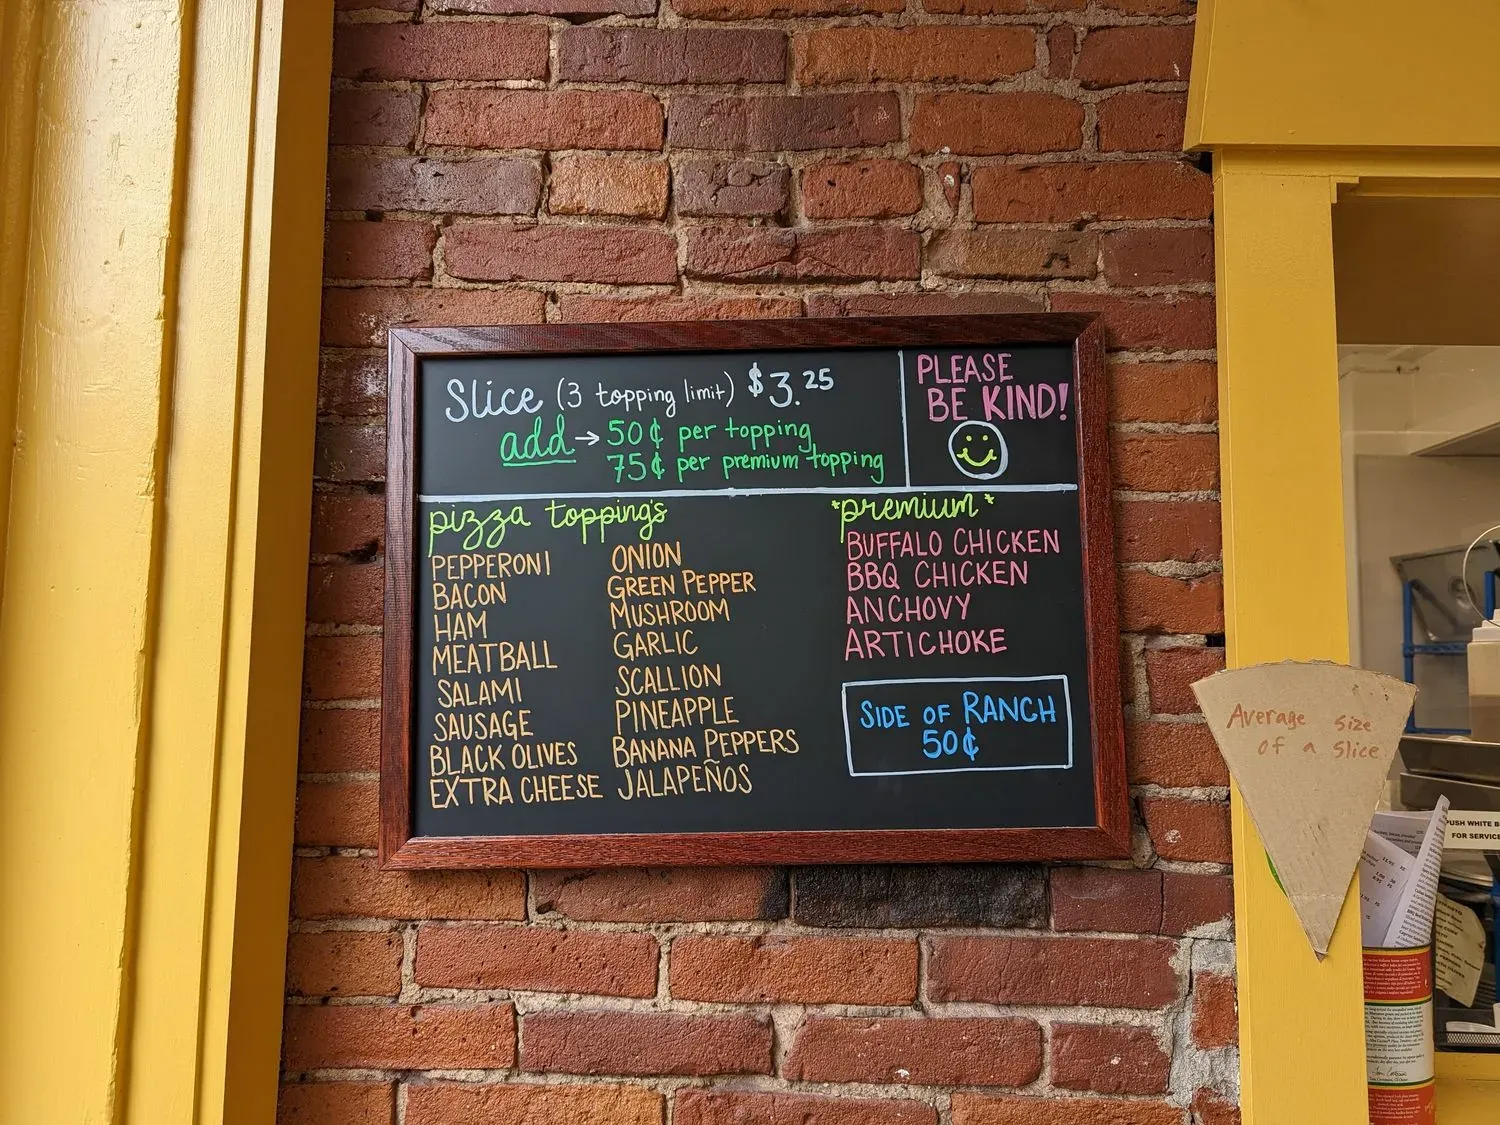 Slice (3 topping limit) $3.25
add → 50¢ per topping
75¢ per premium topping
PLEASE
BE KIND!
pizza topping's
PEPPERONI
BACON
HAM
MEATBALL
SALAMI
SAUSAGE
BLACK OLIVES
EXTRA CHEESE
ONION
GREEN PEPPER
MUSHROOM
GARLIC
SCALLION
PINEAPPLE
BANANA PEPPERS
JALAPEÑOS
*premium*
BUFFALO CHICKEN
BBQ CHICKEN
ANCHOVY
ARTICHOKE
SIDE OF RANCH
50¢
Average size
of a slice
PUSH WHITE
FOR SERVICE